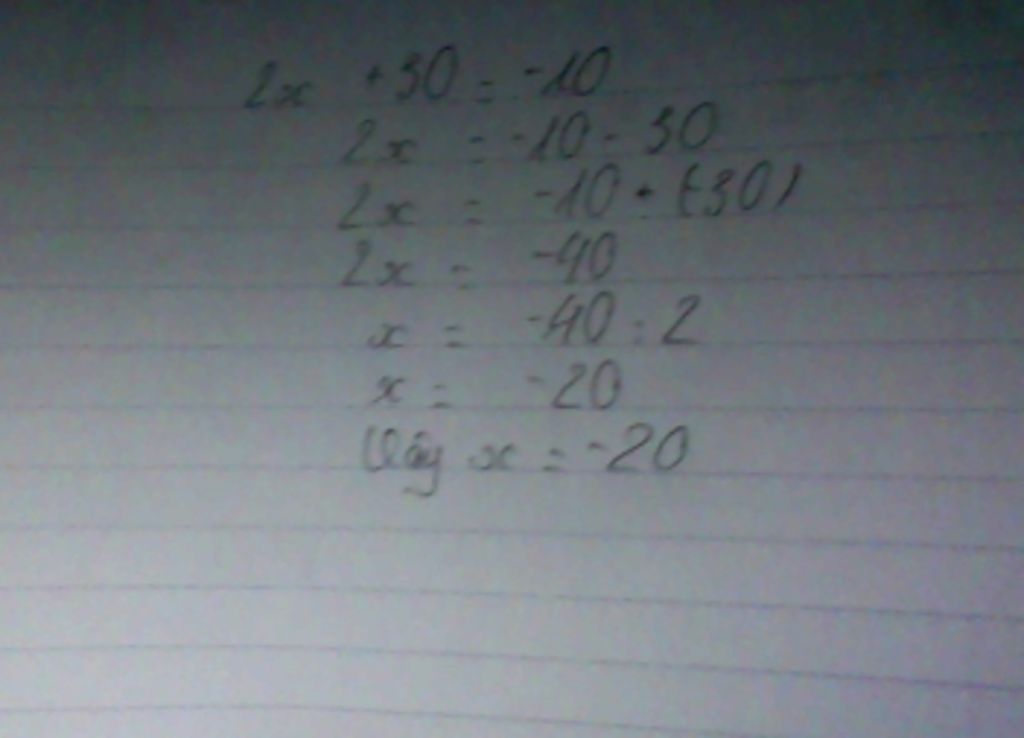 2x + 30 = -10
2x = -10 - 30
2x = -10 + (-30)
2x = -40
x = -40 : 2
x = -20
Vậy x = -20